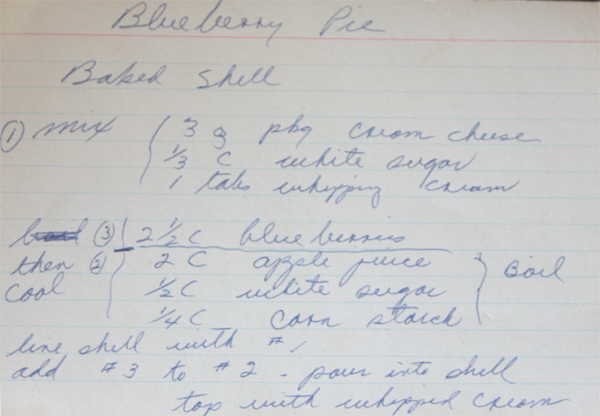 Blueberry Pie
Baked Shell
① mix 3 g pkg cream cheese
1/3 C white sugar
1 tabs whipping cream
③ 2 1/2 C blueberries
then ② 2 C apple juice Boil
cool 1/2 C white sugar
1/4 C corn starch
line shell with #1
add #3 to #2 - pour into shell
top with whipped cream